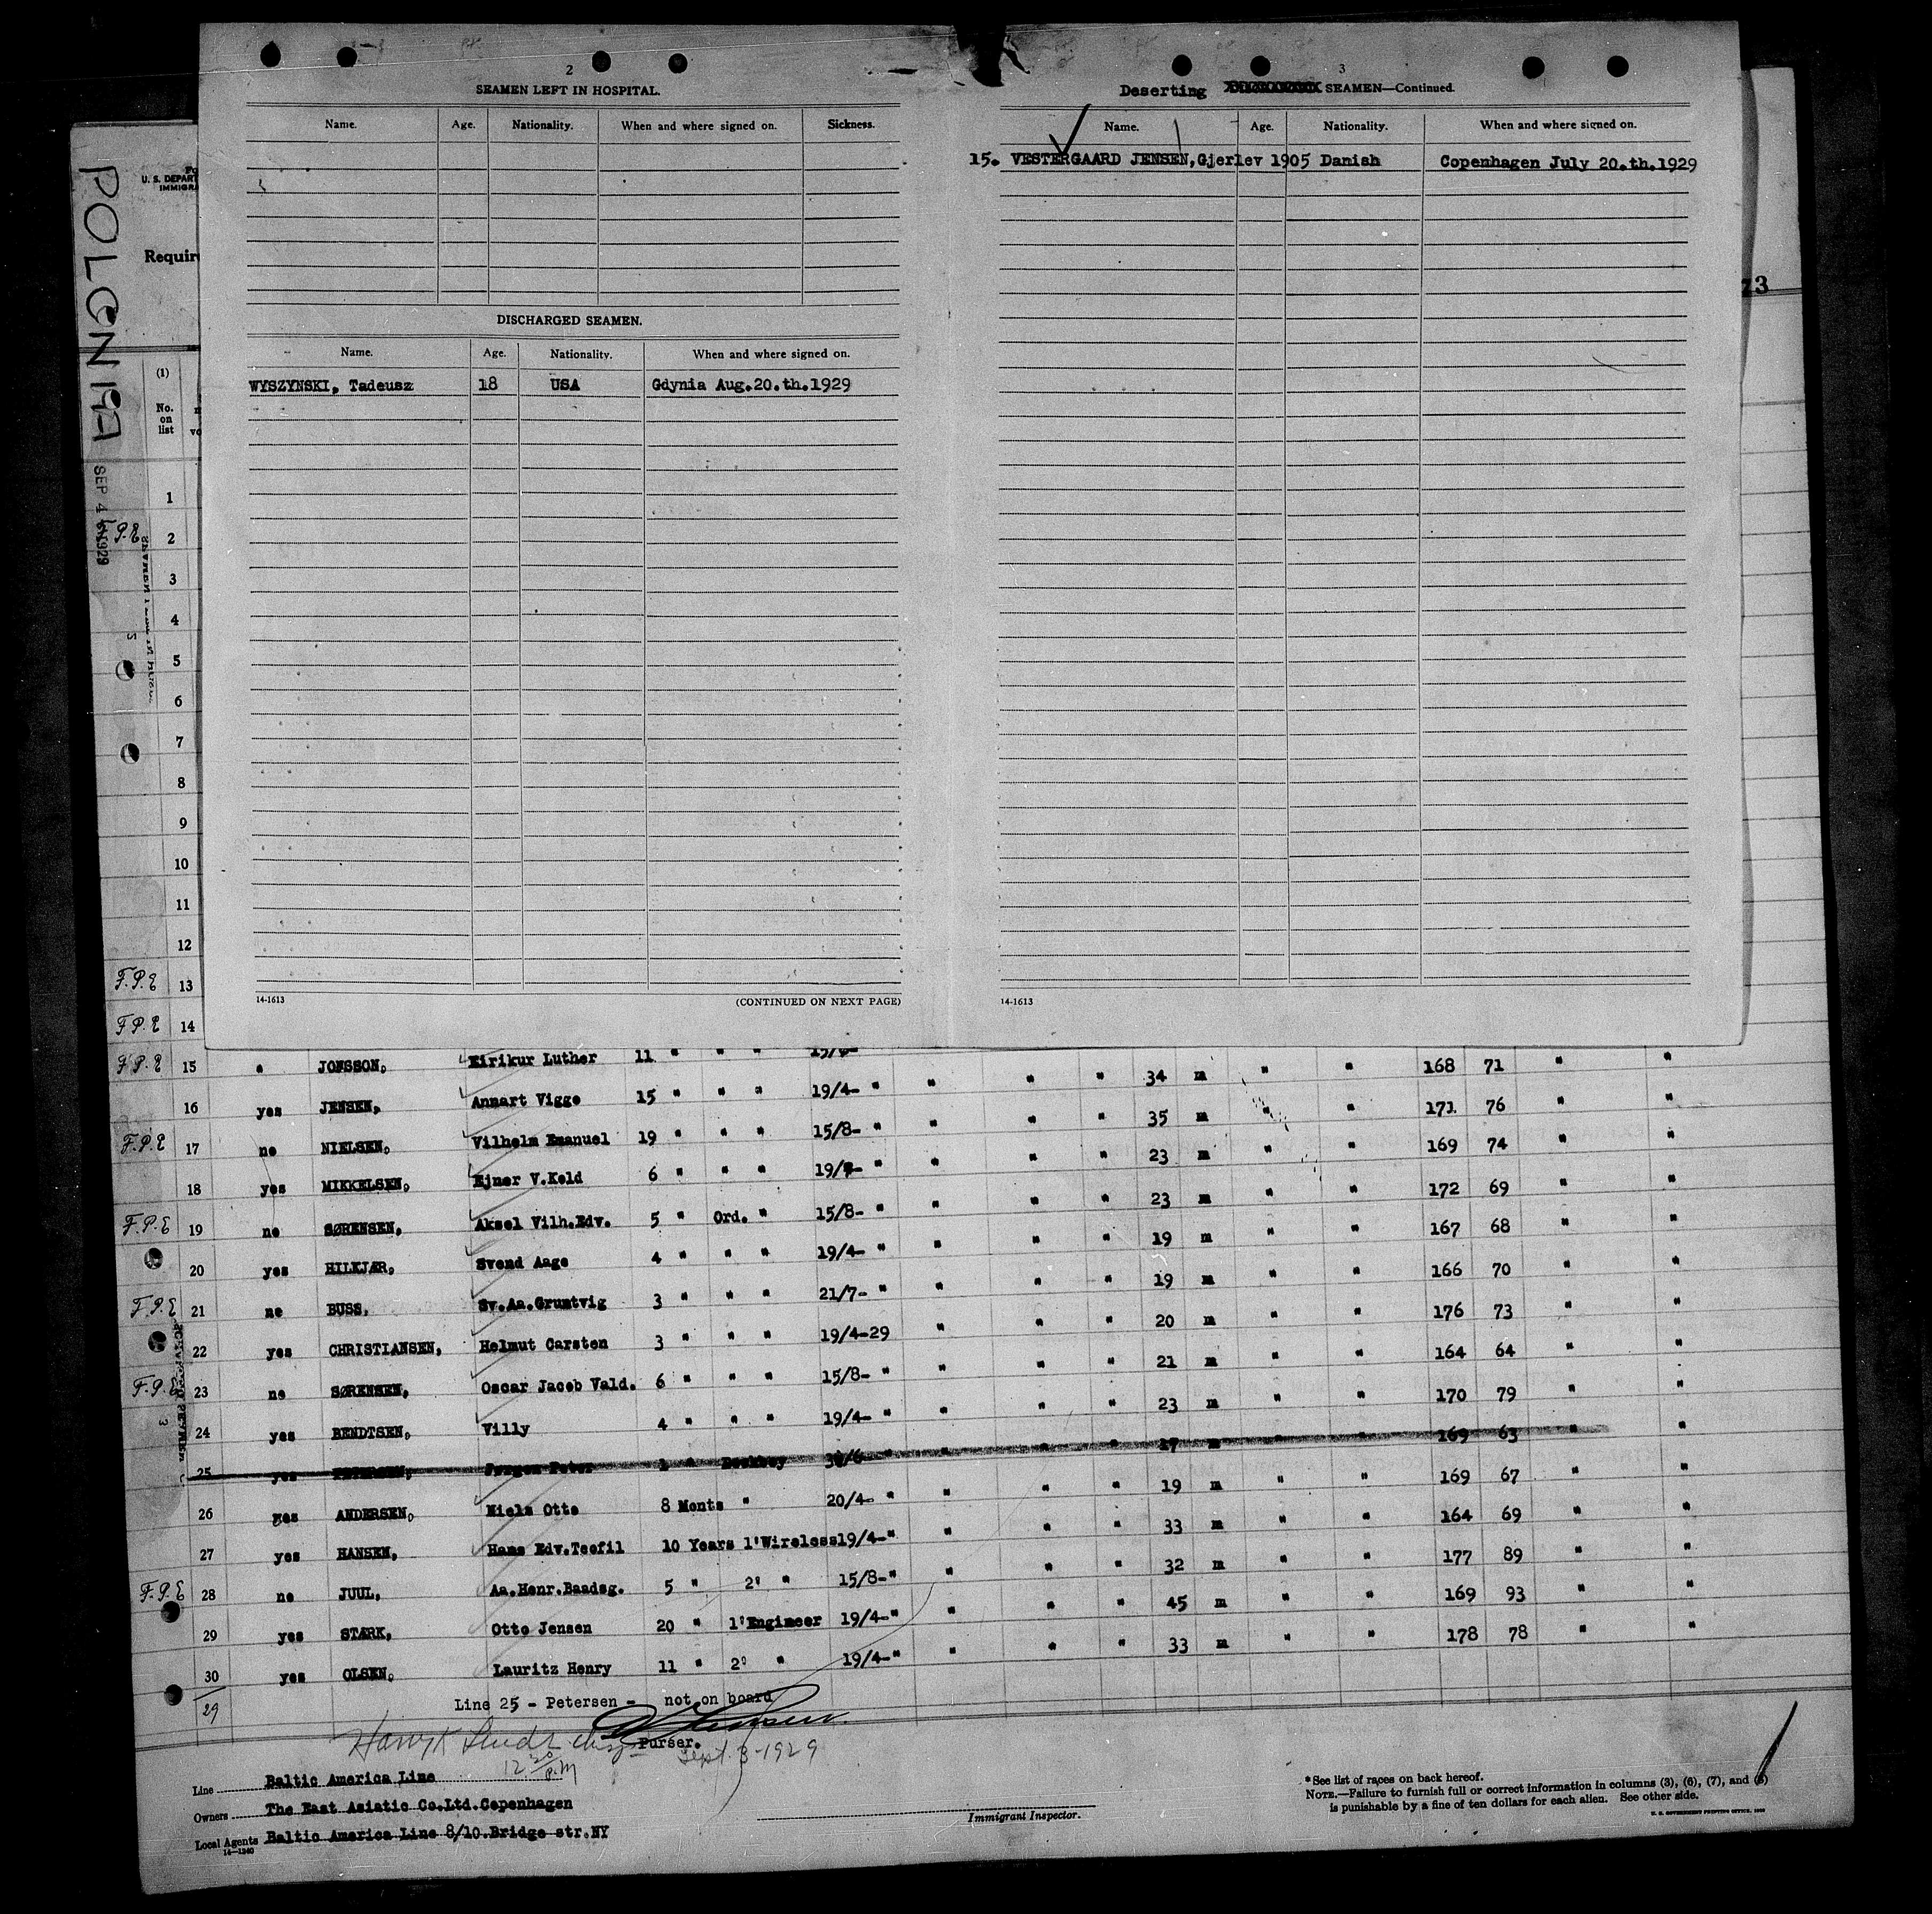 2
SEAMEN LEFT IN HOSPITAL.
Name. Age. Nationality. When and where signed on. Sickness.
DISCHARGED SEAMEN.
Name. Age. Nationality. When and where signed on.
WYSZYNSKI, Tadeusz 18 USA Gdynia Aug.20.th.1929
14-1613 (CONTINUED ON NEXT PAGE)
3
Deserting SEAMEN—Continued.
Name. Age. Nationality. When and where signed on.
15. VESTERGAARD JENSEN, Gjerlev 1905 Danish Copenhagen July 20.th.1929
14-1613
POLONIA
SEP 4 1929
U. S. DEPART
IMMIGRA
Requir
73
(1)
No. on list
1
P.E 2
3
4
5
6
7
8
9
10
11
12
F.P.E 13
F.P.E 14
F.P.E 15 " JONSSON, Eirikur Luther 11 " " " 34 m " " 168 71 " "
16 yes JENSEN, Annart Vigge 15 " " " 19/4- " " " " 35 m " " 171 76 " "
F.P.E 17 no NIELSEN, Vilhelm Emanuel 19 " " " 15/8- " " " " 23 m " " 169 74 " "
18 yes MIKKELSEN, Ejner V.Keld 6 " " " " " " " 23 m " " 172 69 " "
F.P.E 19 no SØRENSEN, Aksel Vilh.Edv. 5 " Ord. " 15/8- " " " " 19 m " " 167 68 " "
20 yes HILKJÆR, Svend Aage 4 " " " 19/4- " " " " 19 m " " 166 70 " "
F.P.E 21 no BUSS, Sv.Aa.Gruntvig 3 " " " 21/7- " " " " 20 m " " 176 73 " "
22 yes CHRISTIANSEN, Helmut Carsten 3 " " " 19/4-29 " " " 21 m " " 164 64 " "
F.P.E 23 no SØRENSEN, Oscar Jacob Vald. 6 " " " 15/8- " " " " 23 m " " 170 79 " "
24 yes BENDTSEN, Villy 4 " " " 19/4- " " " " 17 m " " 169 63 " "
25 yes PETERSEN, Jørgen Peter 1 " Deckboy " " " " 19 m " " 169 67 " "
26 yes ANDERSEN, Niels Otto 8 Monts " 20/4- " " " " 33 m " " 164 69 " "
27 yes HANSEN, Hans Edv.Teofil 10 Years 1'Wireless 19/4-" " " " 32 m " " 177 89 " "
F.P.E 28 no JUUL, Aa.Henr.Baadsg. 5 " 2' " 15/8-" " " " 45 m " " 169 93 " "
29 yes STÆRK, Otto Jensen 20 " 1'Engineer 19/4-" " " " 33 m " " 178 78 " "
30 yes OLSEN, Lauritz Henry 11 " 2' " 19/4-"
29
Line 25 - Petersen - not on board
Purser.
Sept. 3-1929
12 30 P.M
Line Baltic America Line
Owners The East Asiatic Co.Ltd.Copenhagen
Local Agents Baltic America Line 8/10.Bridge str.NY
14-1240
Immigrant Inspector.
*See list of races on back hereof.
NOTE.—Failure to furnish full or correct information in columns (3), (6), (7), and (8)
is punishable by a fine of ten dollars for each alien. See other side.